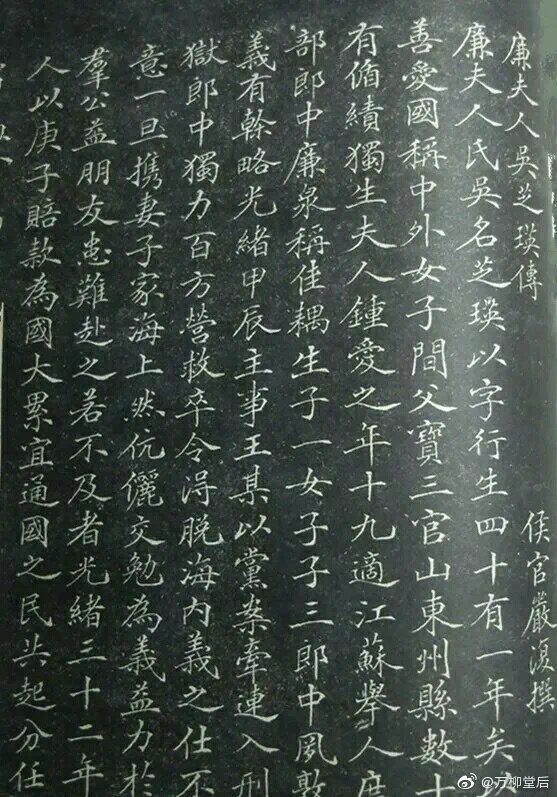 廉夫人吳芝瑛傳
侯官嚴復撰
廉夫人氏吳名芝瑛以字行生四十有一年矣
善愛國稱中外女子間父寶三官山東州縣數十
有循績獨生夫人鍾愛之年十九適江蘇舉人度
部郎中廉泉稱佳耦生子一女子子三郎中夙敦
義有幹略光緒甲辰主事王某以黨案牽連入刑
獄郎中獨力百方營救卒令得脫海內義之仕不
意一旦攜妻子家海上然伉儷交勉為義益力於
羣公益朋友患難赴之若不及者光緒三十二年
人以庚子賠款為國大累宜通國之民共起分任
@万柳堂后